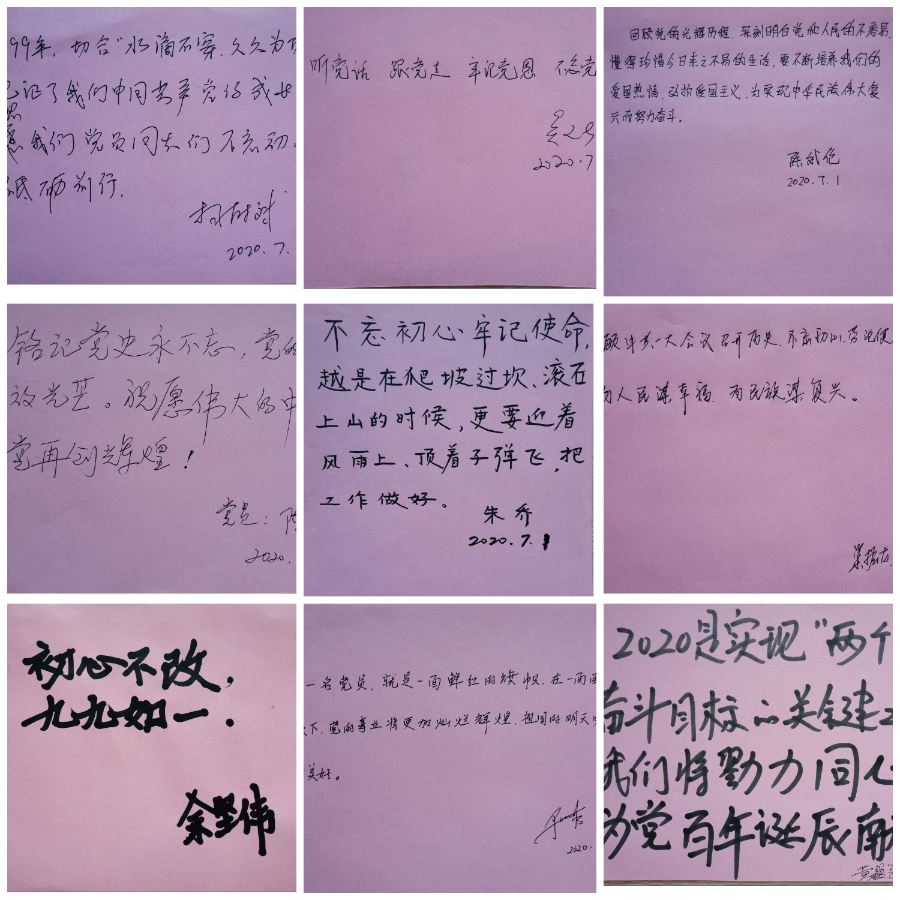 99年，切合“水滴石穿，久久为功
已证了我们中国共产党的成长
愿我们党员同志们不忘初心
砥砺前行。
2020.7.
听党话 跟党走 牢记党恩 不忘党
2020.7
回顾党的光辉历程，深刻明白党和人民的不易，
懂得珍惜今日来之不易的生活，要不断培养我们的
爱国热情，弘扬爱国主义，为实现中华民族伟大复
兴而努力奋斗。
2020.7.1
铭记党史永不忘，党的
放光芒。祝愿伟大的中
党再创辉煌！
党员：陈
2020.
不忘初心牢记使命，
越是在爬坡过坎、滚石
上山的时候，更要迎着
风雨上、顶着子弹飞，把
工作做好。
朱乔
2020.7.1
顾中共一大会议召开历史，不忘初心，牢记使
为人民谋幸福，为民族谋复兴。
初心不改，
九九如一.
余坚伟
一名党员，就是一面鲜红的旗帜，在一面面
下，党的事业将更加灿烂辉煌，祖国的明天
美好。
2020.
2020是实现“两个
奋斗目标的关键之
我们将勠力同心
为党百年诞辰献